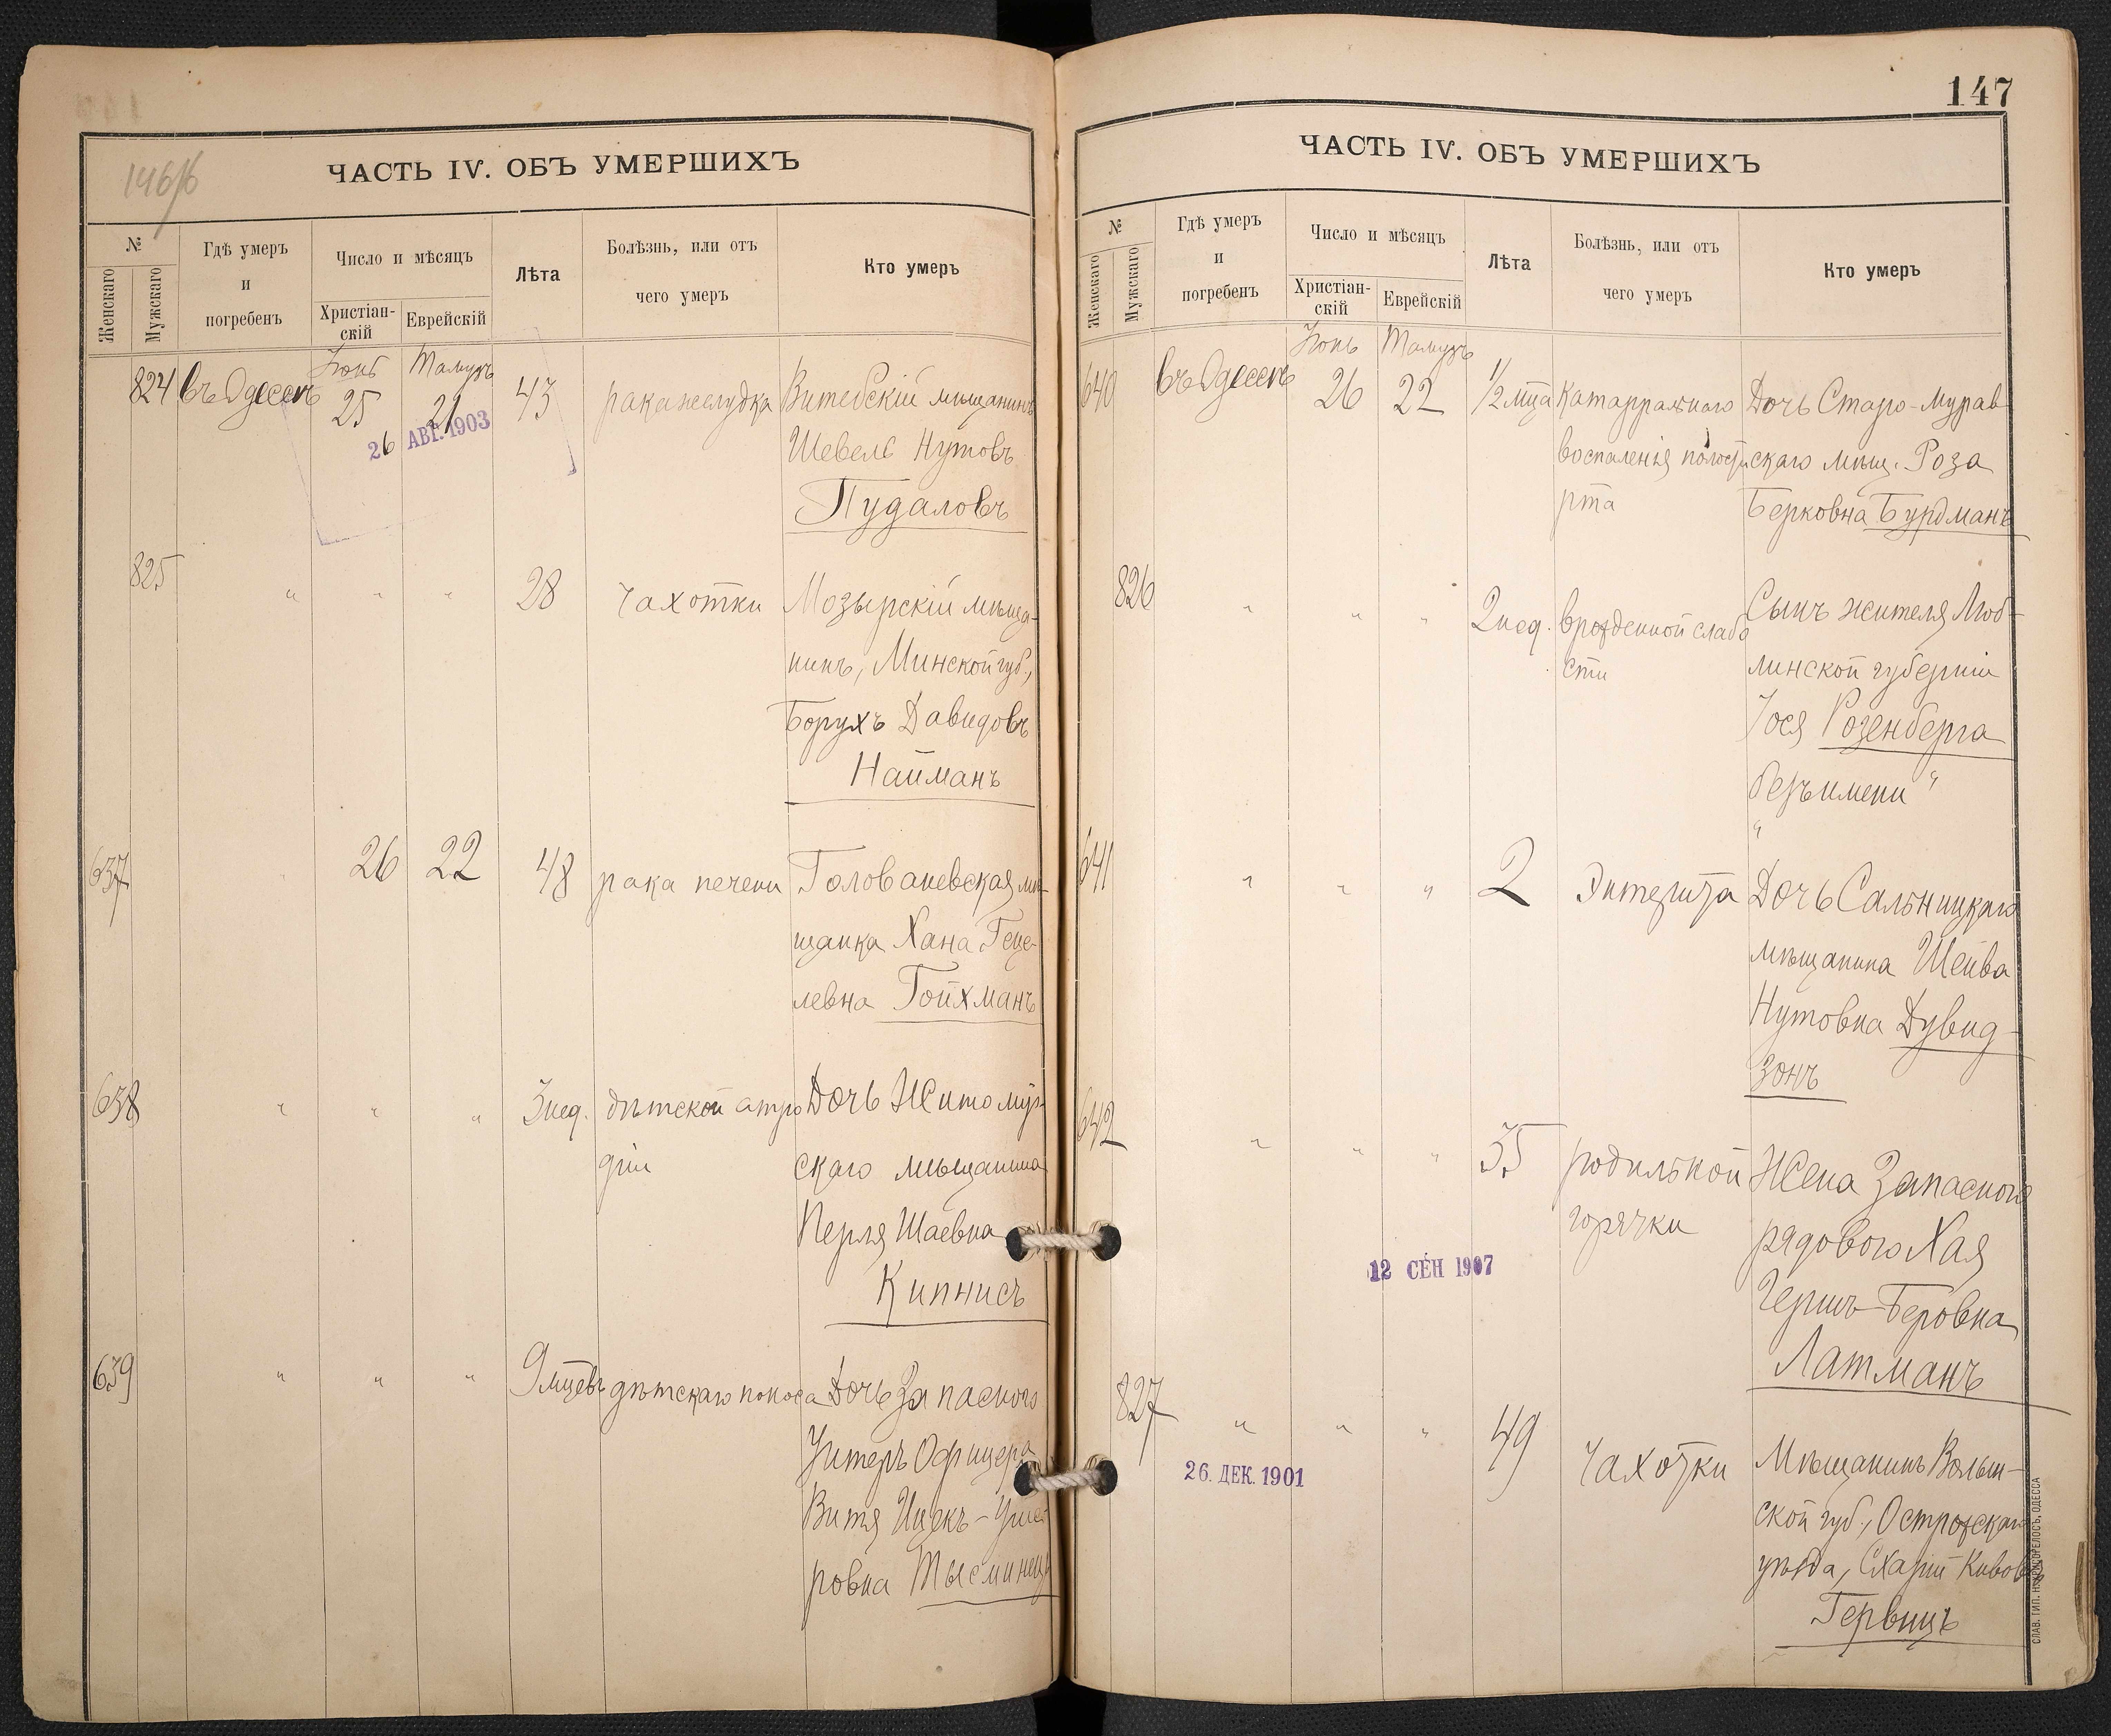 146/б
ЧАСТЬ IV. ОБЪ УМЕРШИХЪ
№
Женскаго
Мужскаго
Гдѣ умеръ
и
погребенъ
Число и мѣсяцъ
Христіан-
скій
Еврейскій
Лѣта
Болѣзнь, или отъ
чего умеръ
Кто умеръ
Іюнь Тамузъ
824 въ Одессѣ 25 21 43 рака желудка Витебскій мѣщанинъ
26 АВГ. 1903
Шевель Нутовъ
Пудаловъ
825 " " " 28 чахотки Мозырскій мѣща-
нинъ, Минской губ.,
Борухъ Давидовъ
Найманъ
637 " 26 22 48 рака печени Голованевская мѣ-
щанка Хана Геце-
левна Гойхманъ
638 " " " 3 нед. дѣтской атро Дочь Житомір-
фіи скаго мѣщанина
Перля Шаевна
Кипнисъ
639 " " " 9 мцевъ дѣтскаго поноса Дочь Запасного
Унтеръ Офицера
Витя Ицекъ-
ровна Тысминец
147
ЧАСТЬ IV. ОБЪ УМЕРШИХЪ
№
Женскаго
Мужскаго
Гдѣ умеръ
и
погребенъ
Число и мѣсяцъ
Христіан-
скій
Еврейскій
Лѣта
Болѣзнь, или отъ
чего умеръ
Кто умеръ
Іюнь Тамузъ
640 въ Одессѣ 26 22 1/2 мца катарральнаго Дочь Старо-Мурав
воспаленія полости скаго мѣщ. Роза
рта Берковна Бурдманъ
826 " " " 2 нед. врожденной слабо Сынъ жителя Люб-
сти линской губерніи
Іося Розенберга
безъ имени "
"
641 " " " 2 Энтерита Дочь Сальницкаго
мѣщанина Шейва
Нутовна Дувид-
зонъ
642 " " " 35 родильной Жена Запасного
горячки рядового Хая
12 СЕН 1907
Гершъ-Беровна
Латманъ
827 " " " 49 чахотки Мѣщанинъ Волын-
26. ДЕК. 1901
ской губ., Острожскаго
уѣзда, Схарій Кивовъ
Гервицъ
СЛАВ. ТИП. Н. ХРИСОГЕЛОСЪ, ОДЕССА